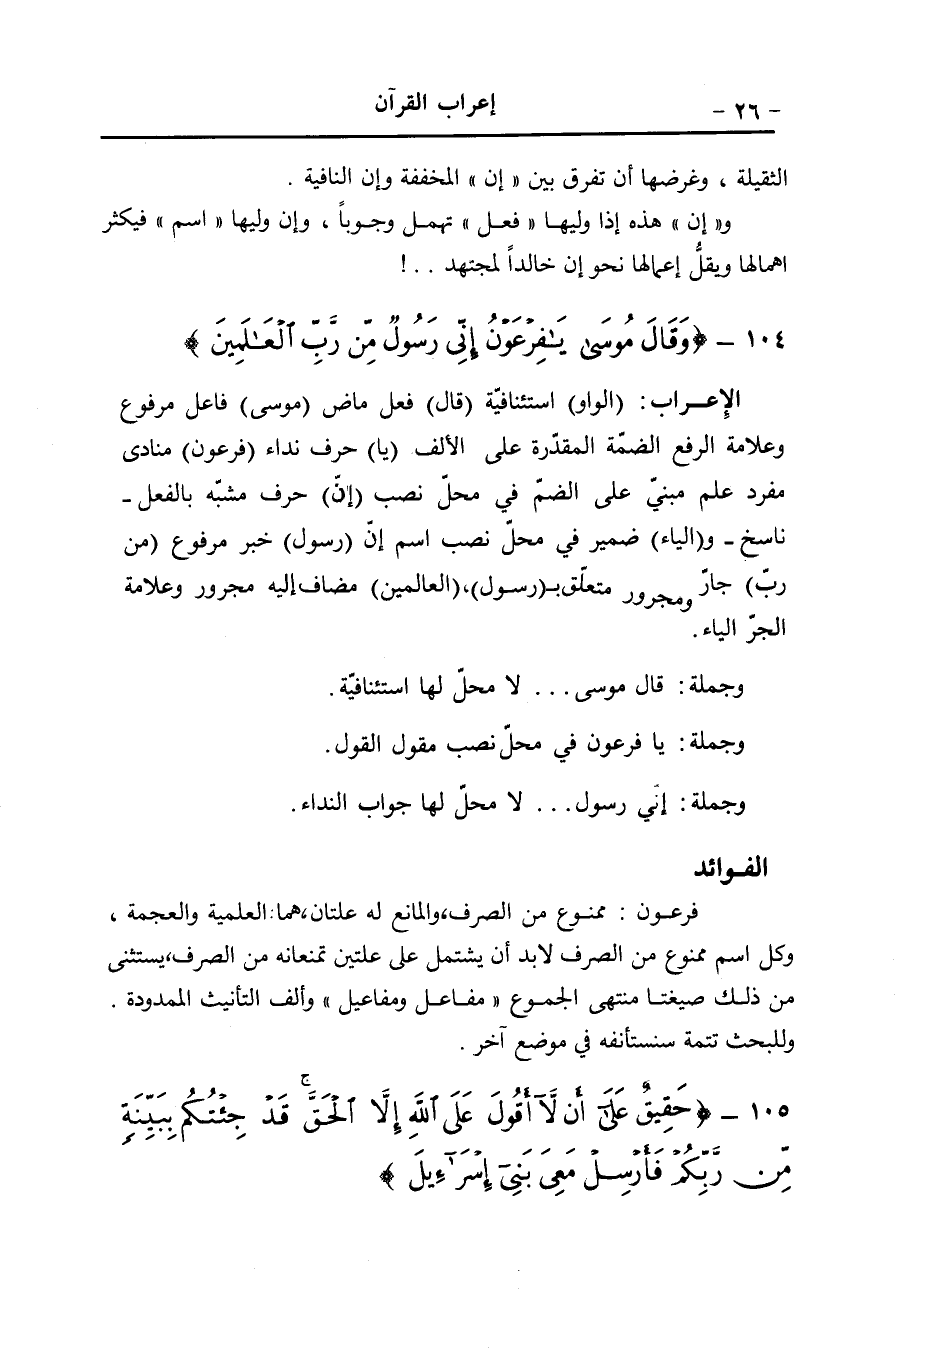 - ٢٦ - إعراب القرآن
الثقيلة ، وغرضها أن تفرق بين « إن » المخففة وإن النافية .
و« إن » هذه إذا وليهـا « فعـل » تهمـل وجـوباً ، وإن وليها « اسم » فيكثر
اهمالها ويقلُّ إعمالها نحو إن خالداً لمجتهد . . !
١٠٤ - ﴿وَقَالَ مُوسَىٰ يَـٰفِرْعَوْنُ إِنِّى رَسُولٌ مِّن رَّبِّ ٱلْعَـٰلَمِينَ ﴾
الإعـراب : (الواو) استئنافيّة (قال) فعل ماض (موسى) فاعل مرفوع
وعلامة الرفع الضمّة المقدّرة على الألف (يا) حرف نداء (فرعون) منادى
مفرد علم مبنيّ على الضمّ في محلّ نصب (إنّ) حرف مشبّه بالفعل -
ناسخ - و(الياء) ضمير في محلّ نصب اسم إنّ (رسول) خبر مرفوع (من
ربّ) جارّ ومجرور متعلّق بـ(رسـول)،(العالمين) مضاف إليه مجرور وعلامة
الجرّ الياء.
وجملة : قال موسى . . . لا محلّ لها استئنافيّة.
وجملة : يا فرعون في محلّ نصب مقول القول.
وجملة : إنّي رسول . . . لا محلّ لها جواب النداء.
الفـوائد
فرعـون : ممنـوع من الصرف،والمانع له علتان،هما:العلمية والعجمة ،
وكل اسم ممنوع من الصرف لابد أن يشتمل على علتين تمنعانه من الصرف،يستثنى
من ذلـك صيغتـا منتهى الجمـوع « مفـاعـل ومفاعيل » وألف التأنيث الممدودة .
وللبحث تتمة سنستأنفه في موضع آخر .
١٠٥ - ﴿ حَقِيقٌ عَلَىٰٓ أَن لَّآ أَقُولَ عَلَى ٱللَّهِ إِلَّا ٱلْحَقَّ ۚ قَدْ جِئْتُكُم بِبَيِّنَةٍ
مِّن رَّبِّكُمْ فَأَرْسِلْ مَعِىَ بَنِىٓ إِسْرَٰٓءِيلَ ﴾